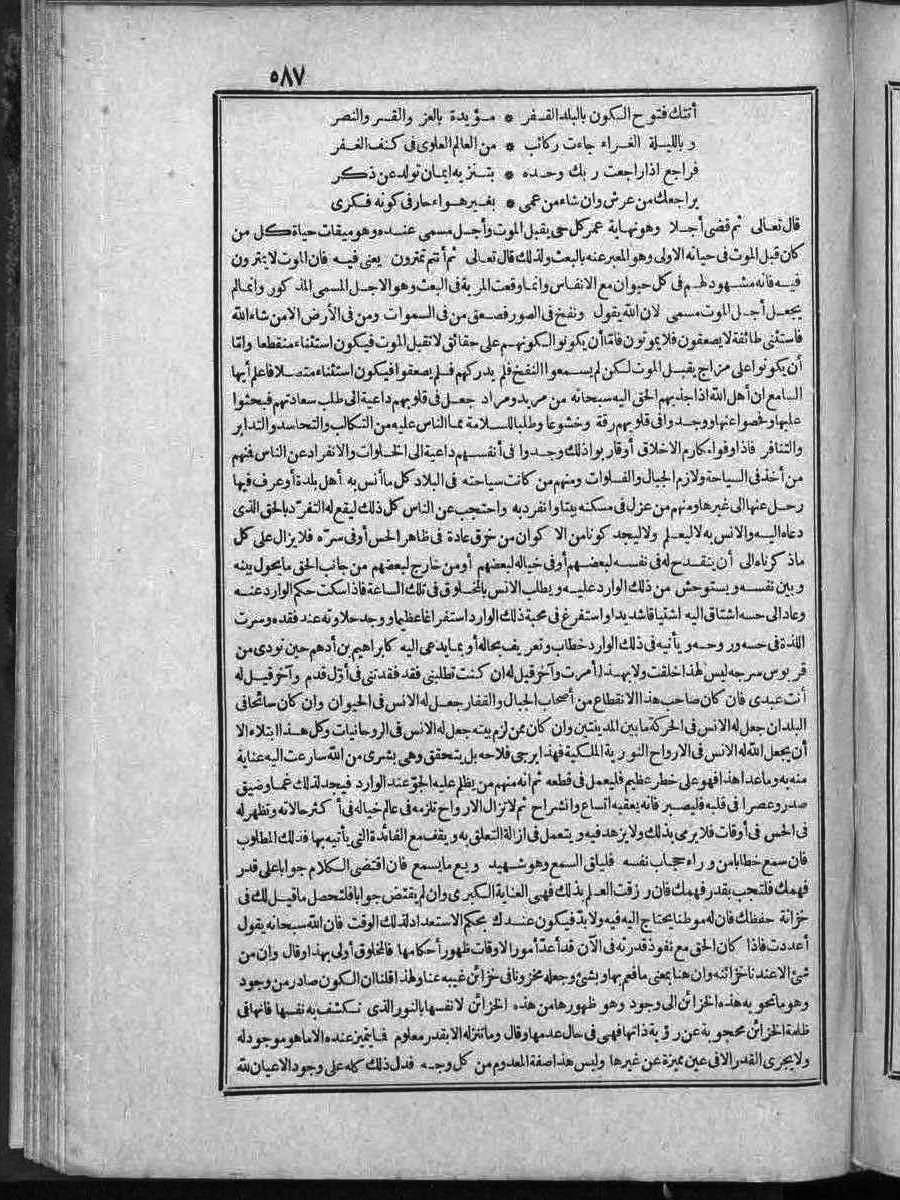 ٥٨٧
أتتك فتوح الكون بالبلد القفر * مؤيدة بالعز والقسر والنصر
وبالليلة الغراء جاءت ركائب * من العالم العلوى فى كنف الغفر
فراجع اذا راجعت ربك وحده * بتنزيه ايمان تولد عن ذكر
يراجعك من عرش وان شاء من عمى * بغير هواء حار فى كونه فكرى
قال تعالى ثم قضى أجلا وهو نهاية عمر كل حى يقبل الموت وأجل مسمى عنده وهو ميقات حياة كل من
كان قبل الموت فى حياته الاولى وهو المعبر عنه بالبعث ولذلك قال تعالى ثم أنتم تمترون يعنى فيه فان الموت لا يمترون
فيه فانه مشهود لهم فى كل حيوان مع الانفاس وانما وقعت المرية فى البعث وهو الاجل المسمى المذكور وانما لم
يجعل أجل الموت مسمى لان الله يقول ونفخ فى الصور فصعق من فى السموات ومن فى الأرض الا من شاء الله
فاستثنى طائفة لا يصعقون فلا يموتون فاما أن يكونوا لكونهم على حقائق لا تقبل الموت فيكون استثناء منقطعا واما
أن يكونوا على مزاج يقبل الموت لكن لم يسمعوا النفخ فلم يدركهم فلم يصعقوا فيكون استثناء متصلا فاعلم أيها
السامع ان أهل الله اذا جذبهم الحق اليه سبحانه من مريد ومراد جعل فى قلوبهم داعية الى طلب سعادتهم فبحثوا
عليها وفحصوا عنها ووجدوا فى قلوبهم رقة وخشوعا وطلبا للسلامة مما الناس عليه من التكالب والتحاسد والتدابر
والتنافر فاذا وفوا مكارم الاخلاق أو قاربوا ذلك وجدوا فى أنفسهم داعية الى الخلوات والانفراد عن الناس فمنهم
من أخذ فى السياحة ولازم الجبال والفلوات ومنهم من كانت سياحته فى البلاد كل ما أنس به أهل بلدة أو عرف فيها
رحل عنها الى غيرها ومنهم من عزل فى مسكنه بيتا وانفرد به واحتجب عن الناس كل ذلك ليقع له التفرد بالحق الذى
دعاه اليه والانس به لا ليعلم ولا ليجد كونا من الاكوان من خرق عادة فى ظاهر الحس أو فى سره فلا يزال على كل
ما ذكرناه الى أن ينقدح له فى نفسه لبعضهم أو فى خياله لبعضهم أو من خارج لبعضهم من جانب الحق ما يحول بينه
وبين نفسه ويستوحش من ذلك الوارد عليه ويطلب الانس بالمخلوق فى تلك الساعة فاذا سكت حكم الوارد عنه
وعاد الى حسه اشتاق اليه اشتياقا شديدا واستفرغ فى محبة ذلك الوارد استفراغا عظيما ووجد حلاوته عند فقده وسرت
اللذة فى حسه وروحه ويأتيه فى ذلك الوارد خطاب وتعريف بحاله أو بما يدعى اليه كابراهيم بن أدهم حين نودى من
قربوس سرجه ليس لهذا خلقت ولا بهذا أمرت وآخر قيل له ان كنت تطلبنى فقد فقدتنى فى أول قدم وآخر قيل له
أنت عبدى فان كان صاحب هذا الانقطاع من أصحاب الجبال والقفار جعل له الانس فى الحيوان وان كان سائحا فى
البلدان جعل له الانس فى الحركة ما بين المدينتين وان كان ممن لزم بيته جعل له الانس فى الروحانيات وكل هذا ابتلاء الا
أن يجعل الله له الانس فى الارواح النورية الملكية فهذا يرجى فلاحه بل يتحقق وهى بشرى من الله سارعت اليه عناية
منه به وما عدا هذا فهو على خطر عظيم فليعمل فى قطعه ثم انه منهم من يظلم عليه الجو عند الوارد فيجد لذلك غما وضيق
صدر وعصرا فى قلبه فليصبر فانه يعقبه اتساع وانشراح ثم لا تزال الارواح تلازمه فى عالم خياله فى أكثر حالاته وتظهر له
فى الحس فى أوقات فلا يرمى بذلك ولا يزهد فيه ويتعمل فى ازالة التعلق به ويقف مع الفائدة التى يأتيه بها فذلك المطلوب
فان سمع خطابا من وراء حجاب نفسه فليلق السمع وهو شهيد ويع ما يسمع فان اقتضى الكلام جوابا على قدر
فهمك فلتجب بقدر فهمك فان رزقت العلم بذلك فهى العناية الكبرى وان لم يقتض جوابا فلتحصل ما قيل لك فى
خزانة حفظك فان له موطنا يحتاج اليه فيه ولا بد فيكون عندك بحكم الاستعداد لذلك الوقت فان الله سبحانه يقول
أعددت فاذا كان الحق مع نفوذ قدرته فى الآن قد أعد أمورا لاوقات ظهور أحكامها فالمخلوق أولى بهذا وقال وان من
شئ الا عندنا خزائنه وان هنا بمعنى ما فعم بها وبشئ وجعله مخزونا فى خزائن غيبه عنا ولهذا قلنا ان الكون صادر من وجود
وهو ما تحويه هذه الخزائن الى وجود وهو ظهورها من هذه الخزائن لانفسها بالنور الذى تكشف به نفسها فانها فى
ظلمة الخزائن محجوبة عن رؤية ذاتها فهى فى حال عدمها وقال وما ننزله الا بقدر معلوم فما يتميز عنده الا ما هو موجود له
ولا يجرى القدر الا فى عين مميزة عن غيرها وليس هذا صفة المعدوم من كل وجه فدل ذلك كله على وجود الاعيان لله